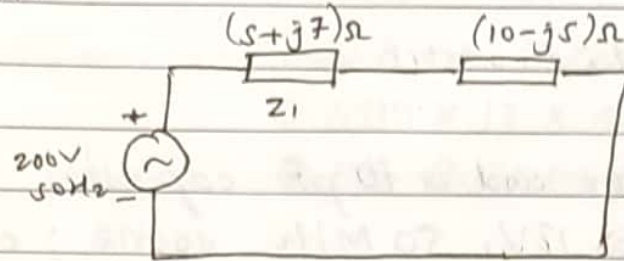 (5+j7)Ω (10-j5)Ω
Z1
+
200V
50Hz
-